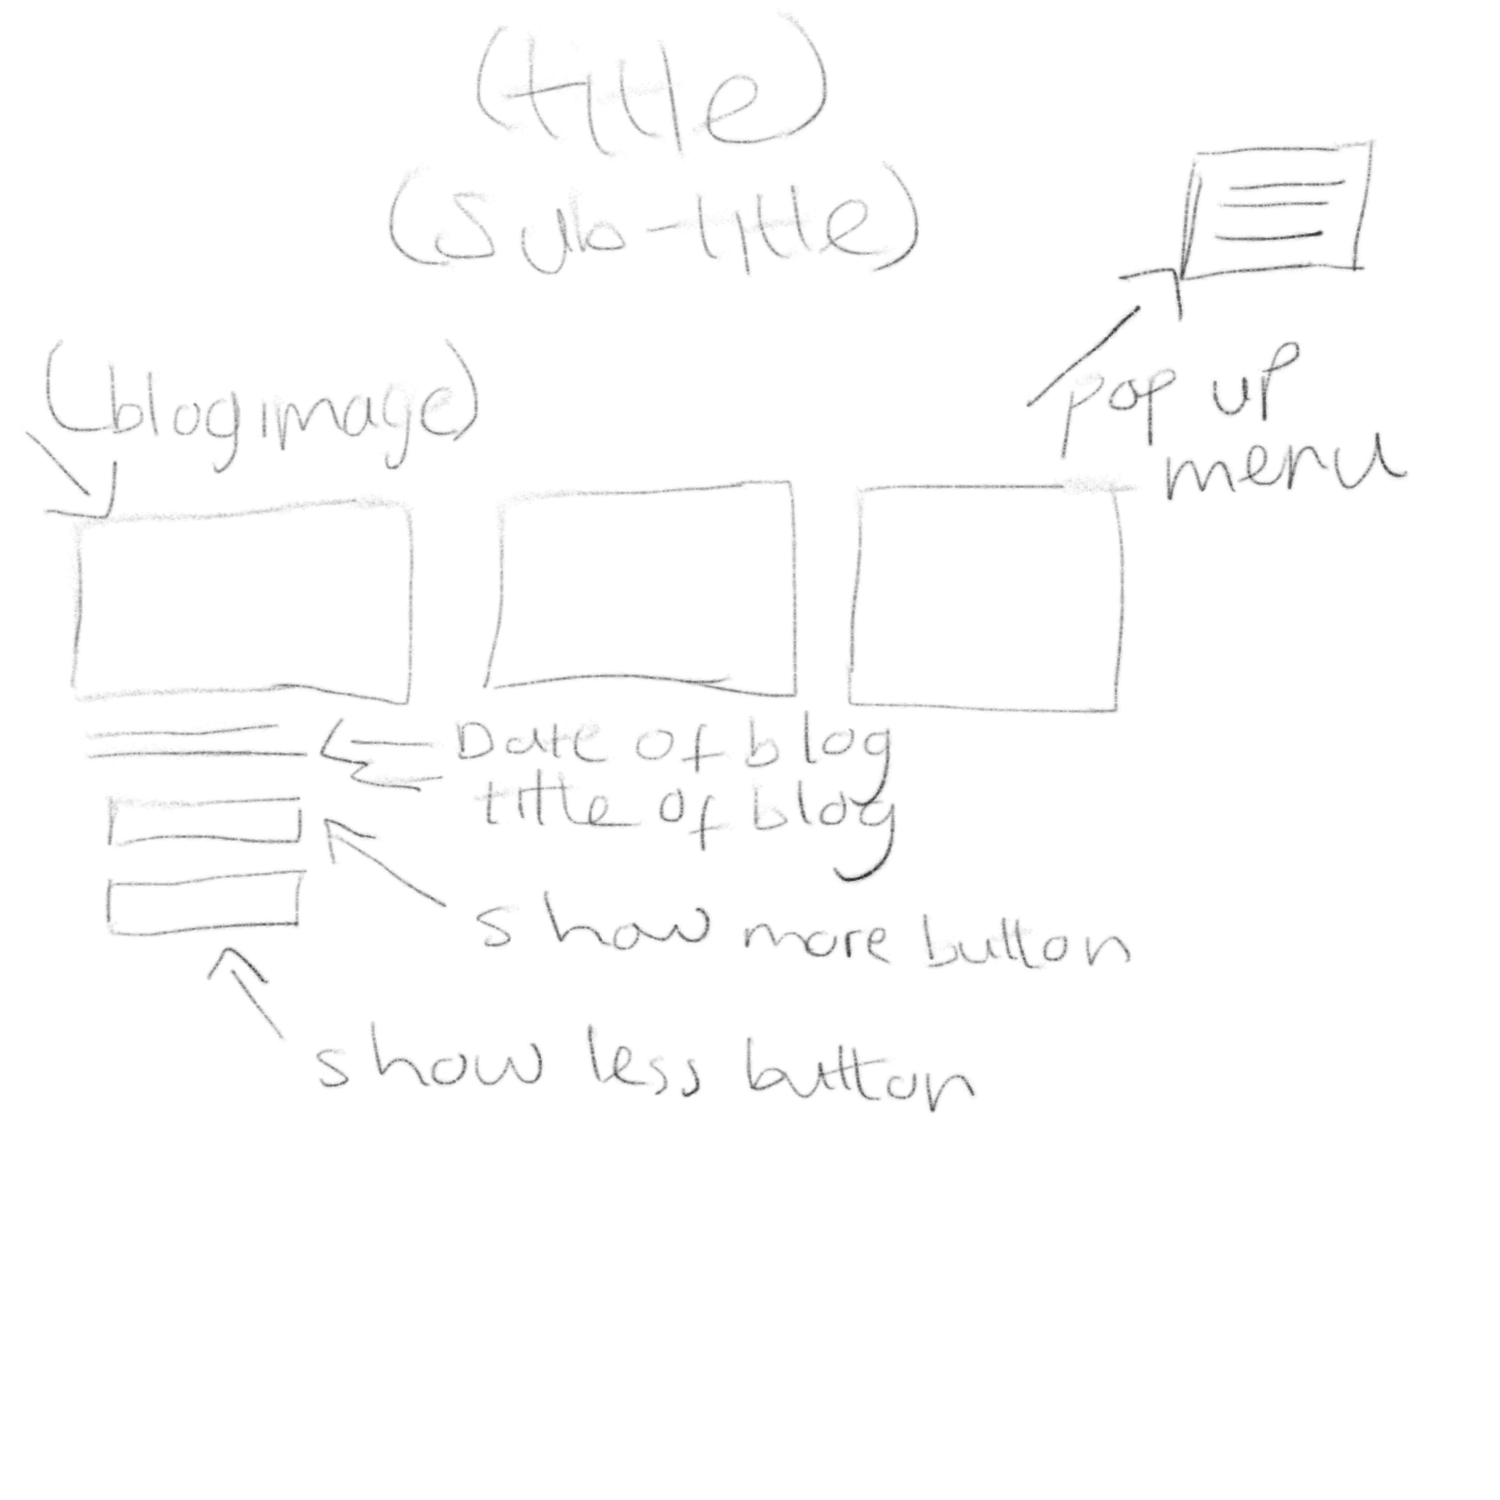 (title)
(Sub-title)
(blog image)
pop up
menu
Date of blog
title of blog
show more button
show less button